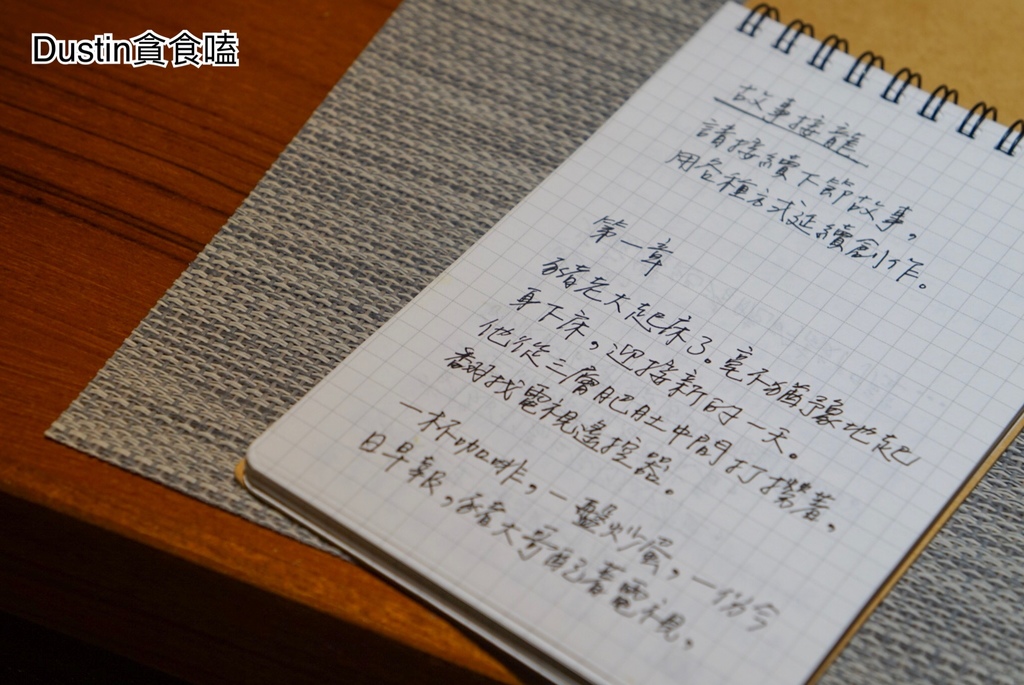 Dustin貪食嗑
故事接龍
請接續下節故事，
用各種方式延續創作。
第一章
豬老大起床了。毫不猶豫地起
身下床，迎接新的一天。
他從三層肥肚中間打撈著，
翻找電視遙控器。
一杯咖啡，一盤炒蛋，一份今
日早報，豬大哥配著電視，